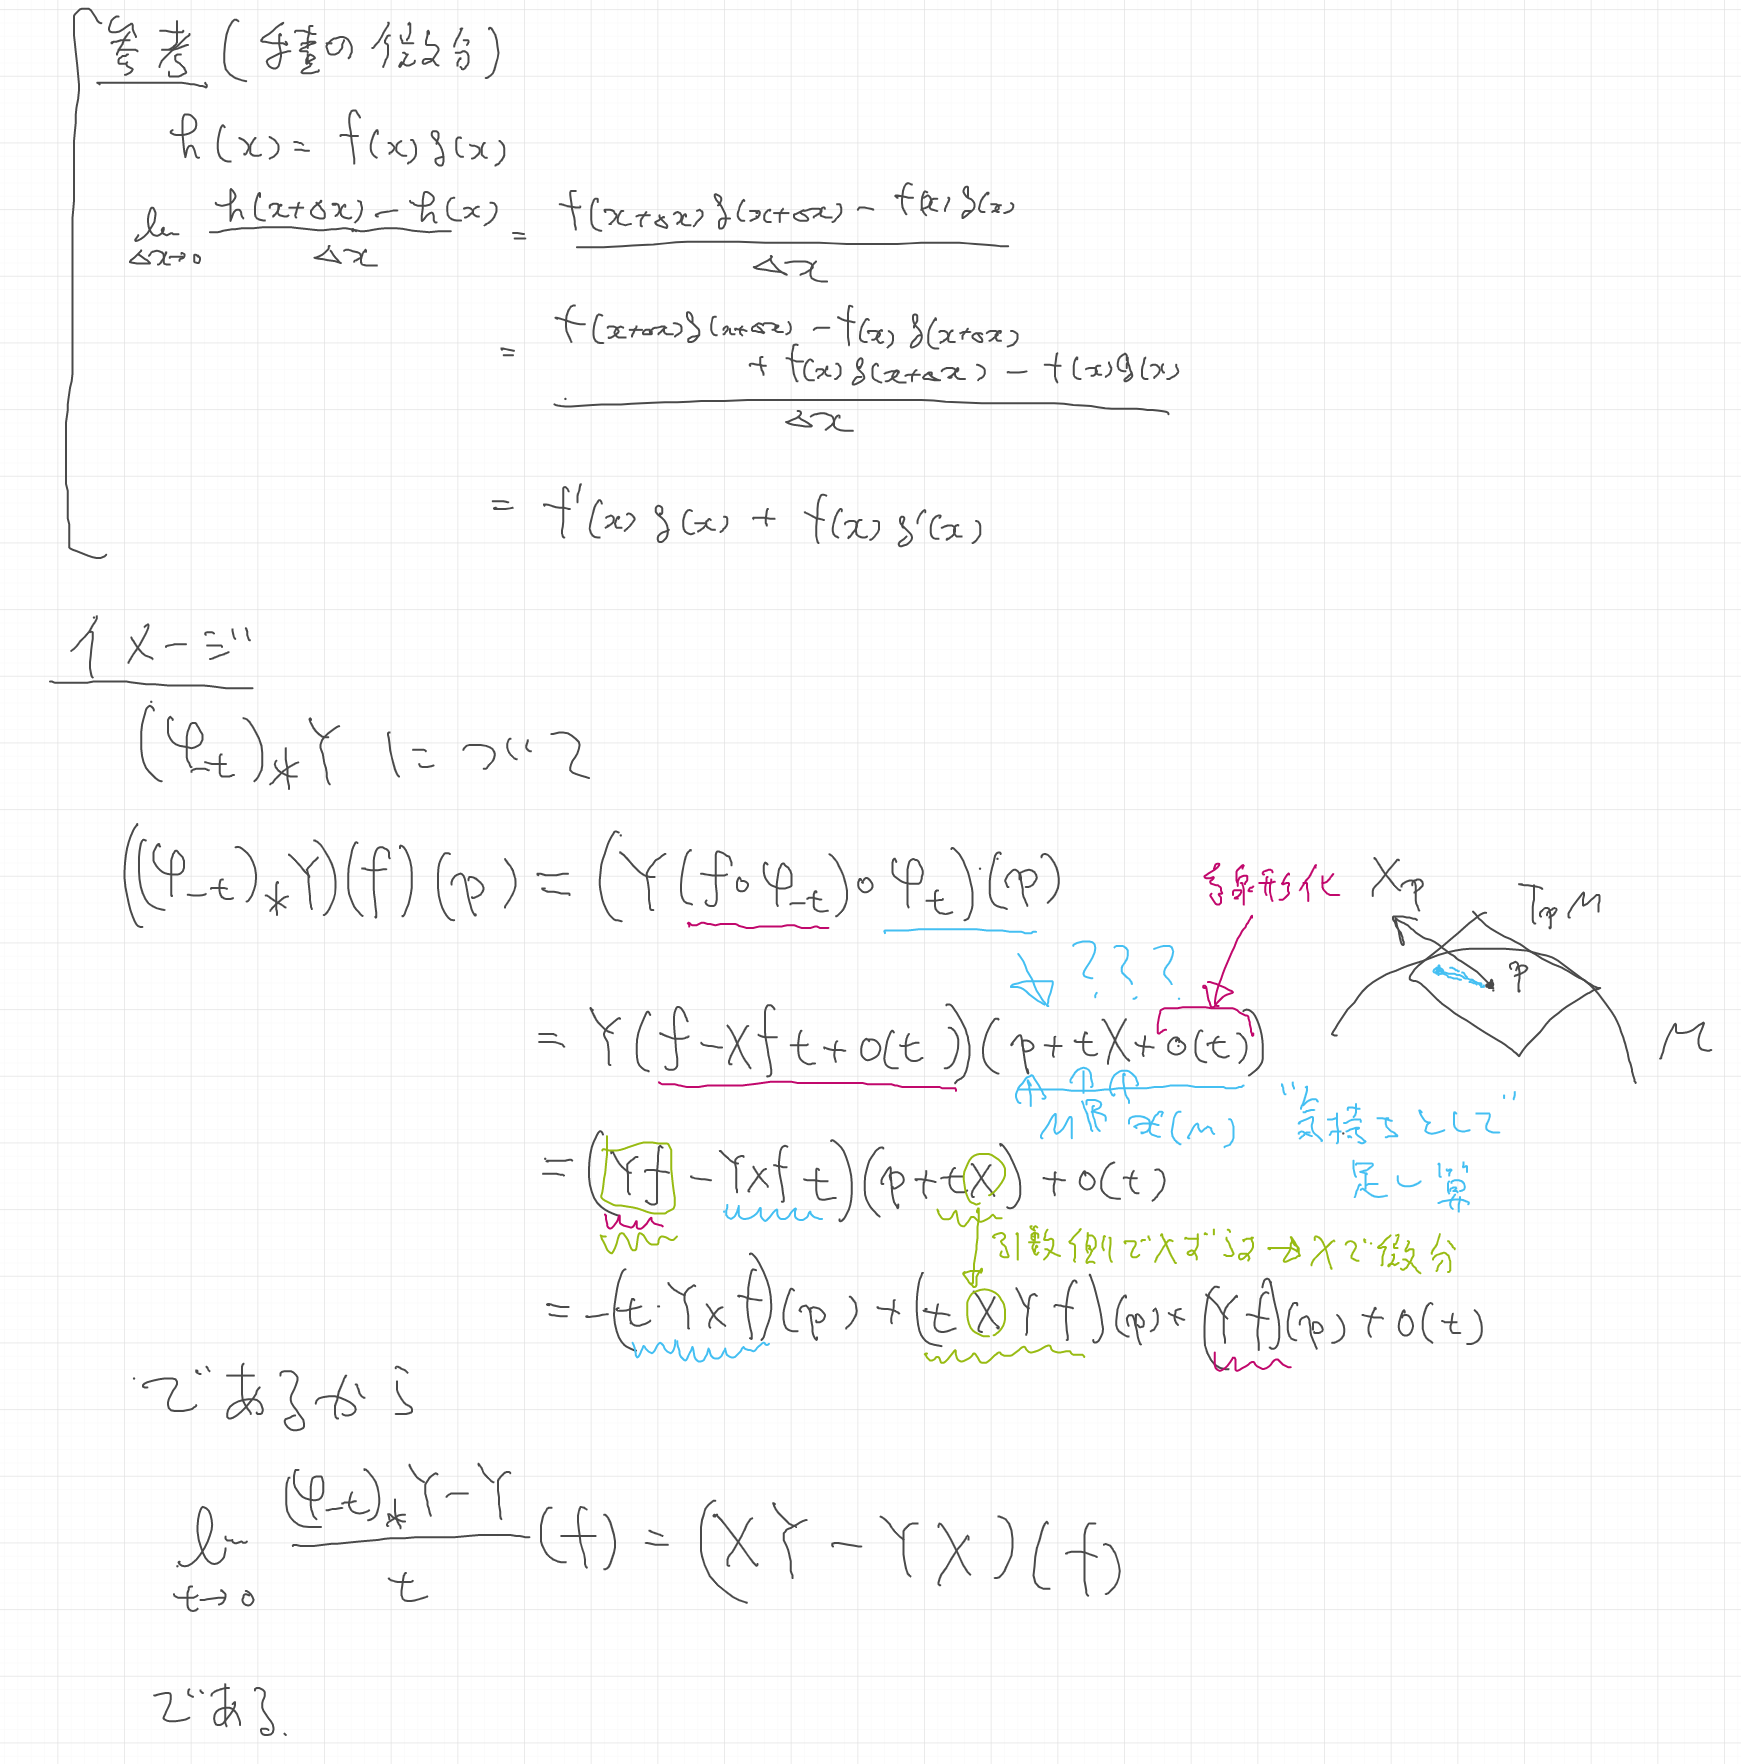 参考 (積の微分)
h(x) = f(x)g(x)
lim Δx→0 h(x+Δx) - h(x) / Δx = f(x+Δx)g(x+Δx) - f(x)g(x) / Δx
= f(x+Δx)g(x+Δx) - f(x)g(x+Δx)
+ f(x)g(x+Δx) - f(x)g(x)
/ Δx
= f'(x)g(x) + f(x)g'(x)
イメージ
(φ_-t)_* Y について
((φ_-t)_* Y)(f)(p) = (Y(f∘φ_-t)∘φ_t)(p)
線形化
X_p
T_pM
p
M
???
= Y(f - Xf t + o(t))(p + tX + o(t))
M ℝ 𝔛(M)
"気持ちとして"
足し算
= (Yf - YXf t)(p + tX) + o(t)
引数側でXずらす → Xで微分
= -(t・YXf)(p) + (t X Y f)(p) + (Yf)(p) + o(t)
であるから
lim t→0 (φ_-t)_* Y - Y / t (f) = (XY - YX)(f)
である.